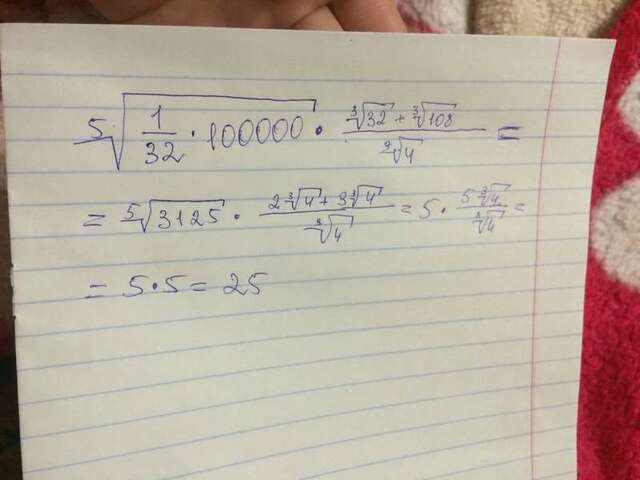 ⁵√(1/32 · 100000) · (³√32 + ³√108)/³√4 =
= ⁵√3125 · (2³√4 + 3³√4)/³√4 = 5 · 5³√4/³√4 =
= 5 · 5 = 25